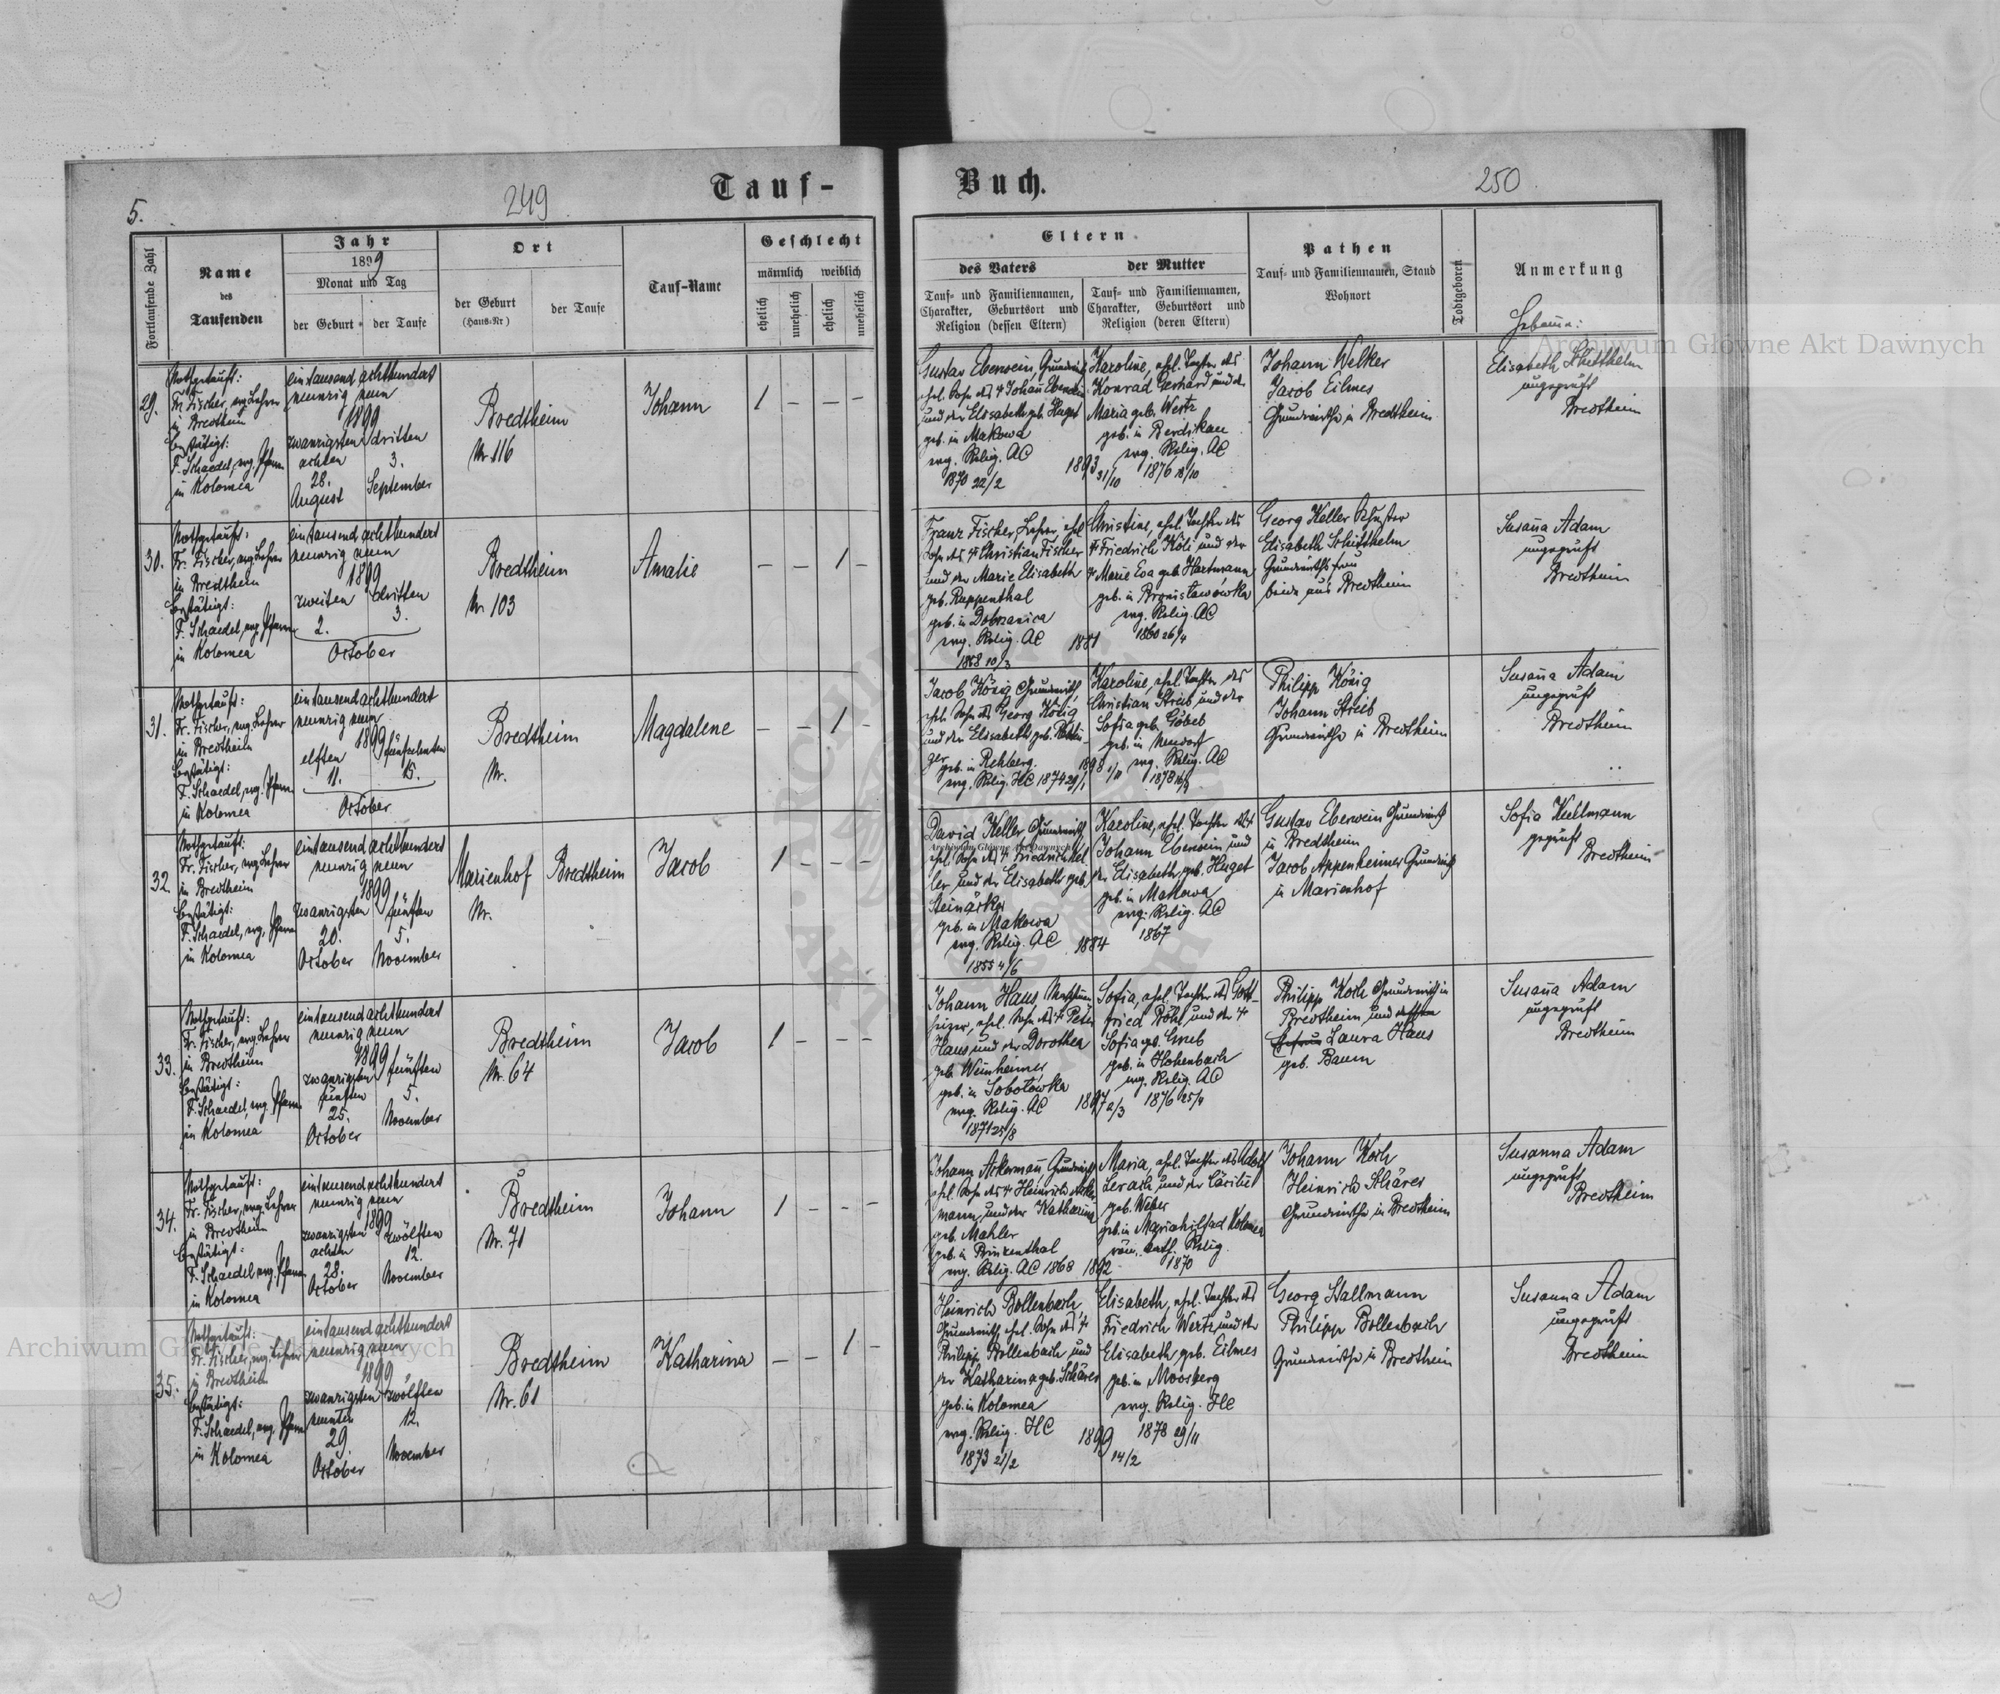 5.
249
Tauf-
Fortlaufende Zahl
Name
des
Taufenden
Jahr
1899
Monat und Tag
der Geburt
der Taufe
Ort
der Geburt
(Haus-Nr)
der Taufe
Tauf-Name
Geschlecht
männlich
weiblich
ehelich
unehelich
ehelich
unehelich
29.
Nothgetauft:
Fr. Fischer, evg. Lehrer
in Bredtheim
bestätigt:
F. Schaedel, evg. Pfarrer
in Kolomea
eintausend achthundert
neunzig neun
1899
zwanzigsten dritten
achten 3.
28.
August September
Bredtheim
Nr. 116
Johann
1 – – –
30.
Nothgetauft:
Fr. Fischer, evg. Lehrer
in Bredtheim
bestätigt:
F. Schaedel, evg. Pfarrer
in Kolomea
eintausend achthundert
neunzig neun
1899
zweiten dritten
2. 3.
October
Bredtheim
Nr. 103
Amalie
– – 1 –
31.
Nothgetauft:
Fr. Fischer, evg. Lehrer
in Bredtheim
bestätigt:
F. Schaedel, evg. Pfarrer
in Kolomea
eintausend achthundert
neunzig neun
1899
elften fünfzehnten
11. 15.
October
Bredtheim
Nr.
Magdalene
– – 1 –
32.
Nothgetauft:
Fr. Fischer, evg. Lehrer
in Bredtheim
bestätigt:
F. Schaedel, evg. Pfarrer
in Kolomea
eintausend achthundert
neunzig neun
1899
zwanzigsten fünften
20. 5.
October November
Marienhof
Nr.
Bredtheim
Jacob
1 – – –
33.
Nothgetauft:
Fr. Fischer, evg. Lehrer
in Bredtheim
bestätigt:
F. Schaedel, evg. Pfarrer
in Kolomea
eintausend achthundert
neunzig neun
1899
zwanzigsten fünften
fünften 5.
25.
October November
Bredtheim
Nr. 64
Jacob
1 – – –
34.
Nothgetauft:
Fr. Fischer, evg. Lehrer
in Bredtheim
bestätigt:
F. Schaedel evg. Pfarrer
in Kolomea
eintausend achthundert
neunzig neun
1899
zwanzigsten zwölften
achten 12.
28.
October November
Bredtheim
Nr. 71
Johann
1 – – –
35.
Nothgetauft:
Fr. Fischer, evg. Lehrer
in Bredtheim
bestätigt:
F. Schaedel, evg. Pfarrer
in Kolomea
eintausend achthundert
neunzig neun
1899
zwanzigsten zwölften
neunten 12.
29.
October November
Bredtheim
Nr. 61
Katharina
– – 1 –
Buch.
250
Eltern
des Vaters
der Mutter
Tauf- und Familiennamen,
Charakter, Geburtsort und
Religion (dessen Eltern)
Tauf- und Familiennamen,
Charakter, Geburtsort und
Religion (deren Eltern)
Pathen
Tauf- und Familiennamen, Stand
Wohnort
Todtgeboren
Anmerkung
Gustav Eberwein, Grundwirth
ehel. Sohn des † Johann Eberwein
und der Elisabeth geb. Huget
geb. in Makowa
evg. Relig. AC
1870 22/2
1893 31/10
Karoline, ehel. Tochter des
Konrad Gerhard und der
Maria geb. Wertz
geb. in Berdikau
evg. Relig. AC
1876 18/10
Johann Welker
Jacob Eilmes
Grundwirthe in Bredtheim
Elisabeth Schitthelm
ungeprüft
Bredtheim
Franz Fischer, Lehrer, ehel.
Sohn des † Christian Fischer
und der Marie Elisabeth
geb. Ruppenthal
geb. in Dobrzanica
evg. Relig. AC
1858 10/3
1881
Christine, ehel. Tochter des
† Friedrich Köli und der
† Marie Eva geb. Hartmann
geb. in Bronisławówka
evg. Relig. AC
1860 26/4
Georg Keller Schuster
Elisabeth Schitthelm
Grundwirthsfrau
beide aus Bredtheim
Susanna Adam
ungeprüft
Bredtheim
Jacob König Grundwirth,
ehel. Sohn des Georg König
ger geb. in Rehberg.
evg. Relig. HC 1874 29/1
1898 1/11
Karoline, ehel. Tochter des
Christian Streib und der
Sofia geb. Göbel
geb. in Neudorf
evg. Relig. AC
Philipp König
Johann Streib
Grundwirthe in Bredtheim
Susanna Adam
ungeprüft
Bredtheim
David Keller Grundwirth
ehel. Sohn des † Friedrich Kel
ler und der Elisabeth geb.
geb. in Makowa
evg. Relig. AC
1855 4/6
1884
Karoline, ehel. Tochter des
Johann Eberwein und
der Elisabeth, geb. Huget
geb. in Makowa
evg. Relig. AC
1867
Gustav Eberwein Grundwirth
in Bredtheim
Jacob Appenheimer Grundwirth
in Marienhof
Sofia Kullmann
geprüft
Bredtheim
Johann Haus
ehel. Sohn des † Peter
Haus und der Dorothea
geb. Weinheimer
geb. in Sobotówka
evg. Relig. AC
1871 25/8
1897 2/3
Sofia, ehel. Tochter des Gott-
fried Pöhl und der †
Sofia geb. Grub
geb. in Hohenbach
evg. Relig. AC
1876 25/4
Philipp Koch Grundwirth in
Bredtheim und
Laura Haus
geb. Baum
Susanna Adam
ungeprüft
Bredtheim
Johann Ackermann Grundwirth
ehel. Sohn des † Heinrich Acker-
mann, und der Katharina
geb. Mahler
geb. in Prinzenthal
evg. Relig. AC 1868
1892
Maria, ehel. Tochter des Adolf
Lerach, und der Cäcilie
geb. Weber
geb. in Mariahilf ad Kolomea
röm. cath. Relig.
1870
Johann Koch
Heinrich Schärer
Grundwirthe, in Bredtheim
Susanna Adam
ungeprüft
Bredtheim
Heinrich Bollenbach,
Grundwirth ehel. Sohn des †
Philipp Bollenbach, und
der Katharina geb. Schärer
geb. in Kolomea
evg. Relig. HC
1873 21/2
1899 14/2
Elisabeth, ehel. Tochter des
Friedrich Wertz, und der
Elisabeth geb. Eilmes
geb. in Moosberg
evg. Relig. HC
1878 29/11
Georg Hallmann
Philipp Bollenbach
Grundwirthe in Bredtheim
Susanna Adam
ungeprüft
Bredtheim
Archiwum Główne Akt Dawnych
Archiwum Główne Akt Dawnych
Archiwum Główne Akt Dawnych